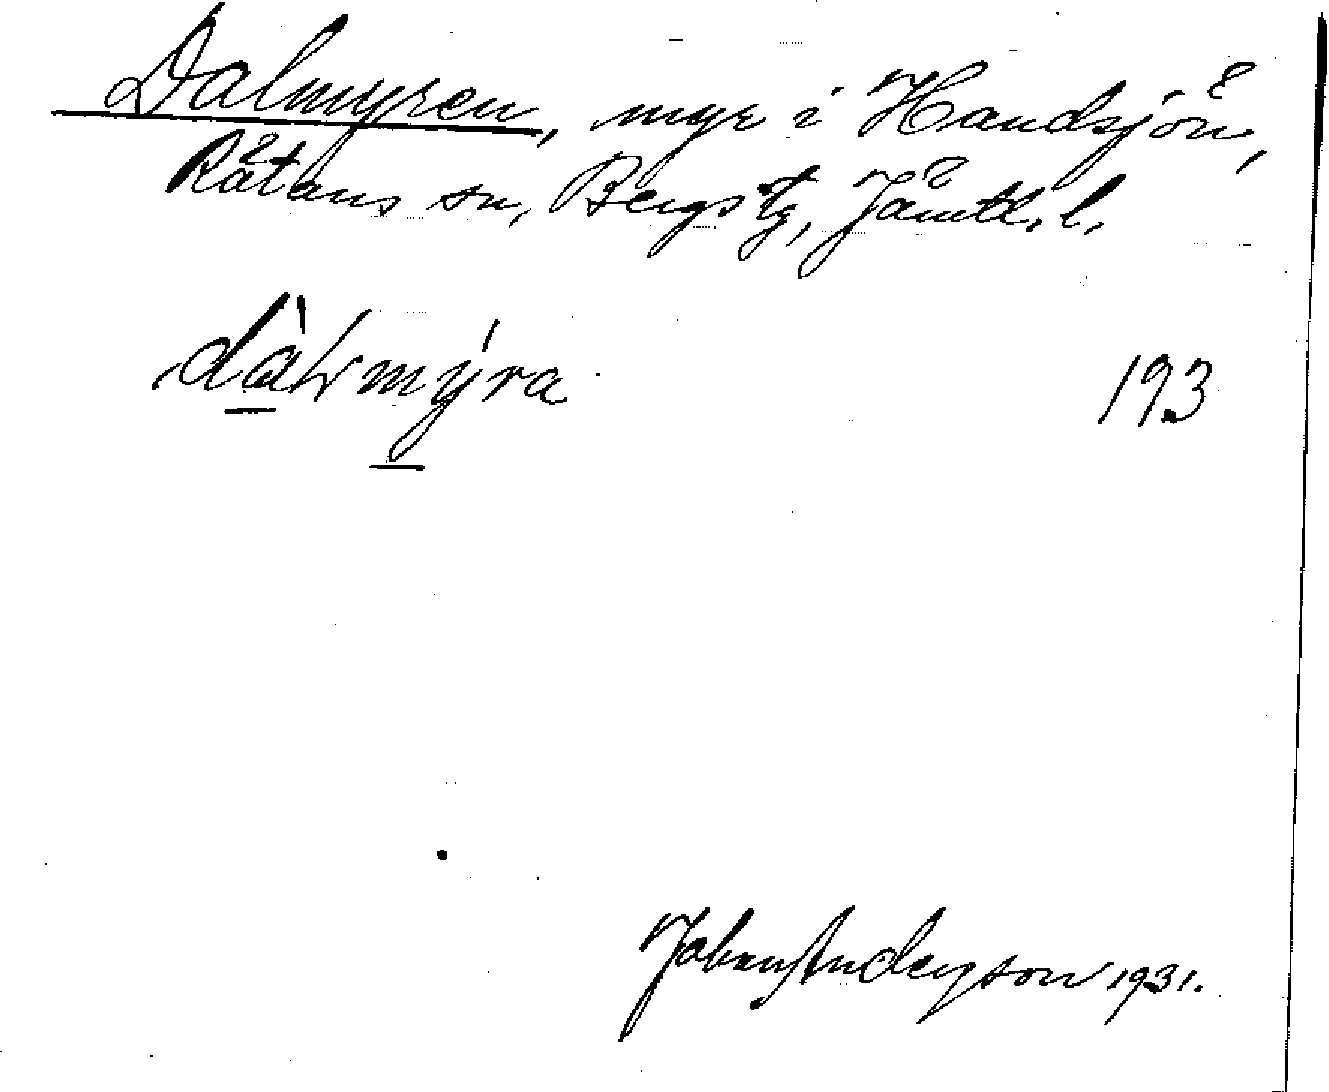 Dalmyren, myr i Handsjön,
Rätans sn, Bergs tg, Jämtl. l.
dàlmýra 193
Johan Anderson 1931.